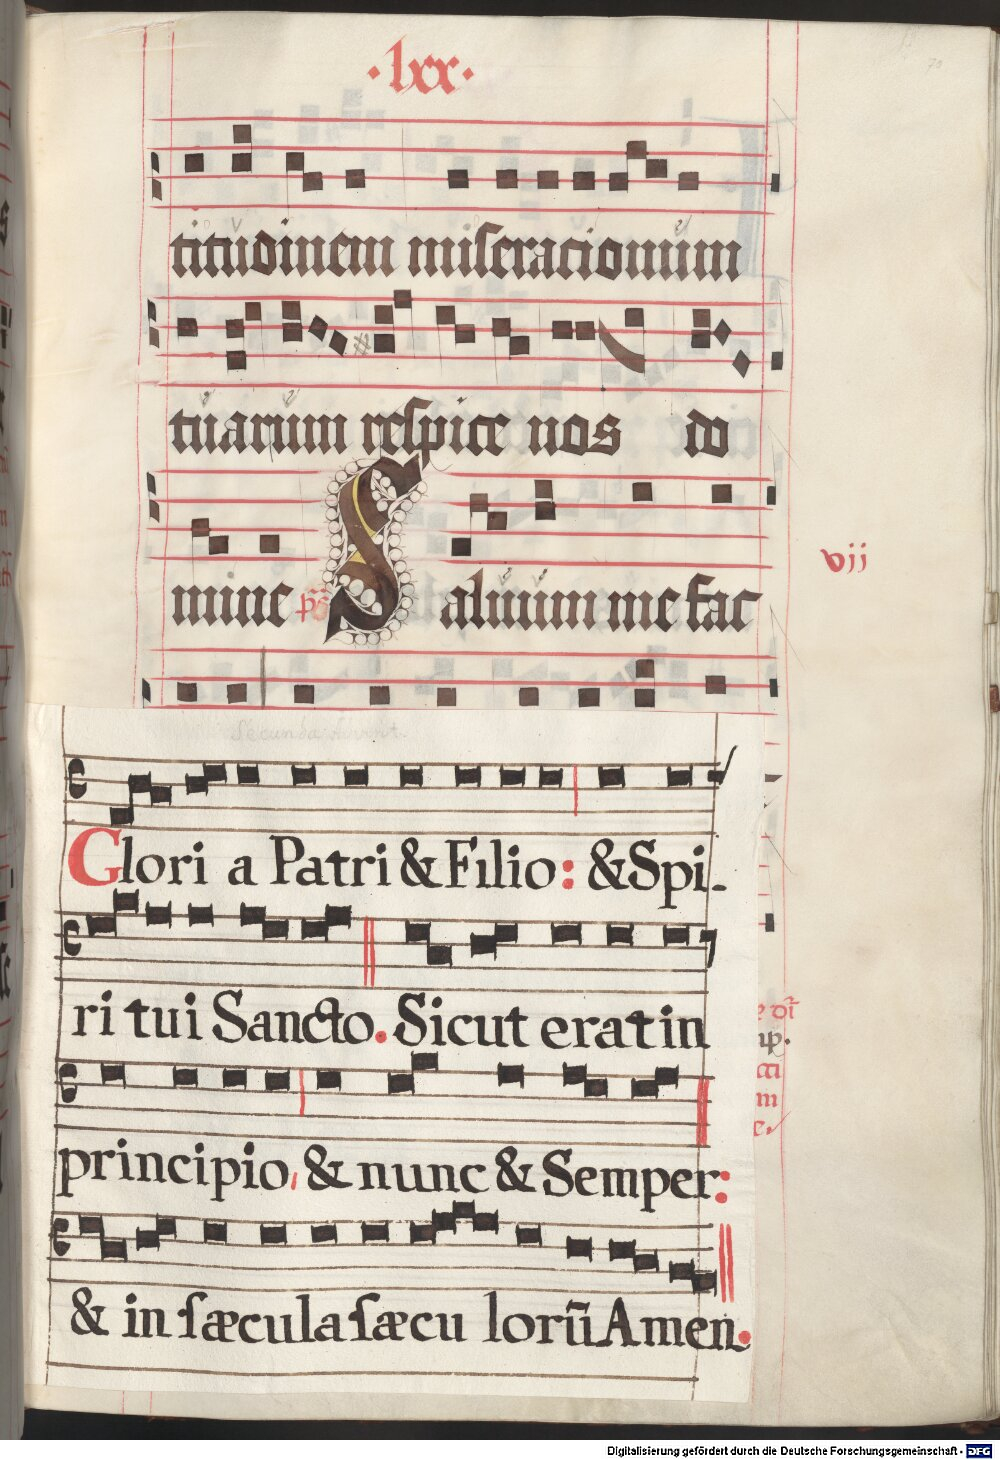 ·lxx·
titudinem miseracionum
tuarum respice nos do
mine ps Saluum me fac
vij
Secunda
Glori a Patri & Filio: & Spi-
ri tui Sancto. Sicut erat in
principio, & nunc & Semper:
& in sæcula sæcu lorũ Amen.
Digitalisierung gefördert durch die Deutsche Forschungsgemeinschaft - DFG